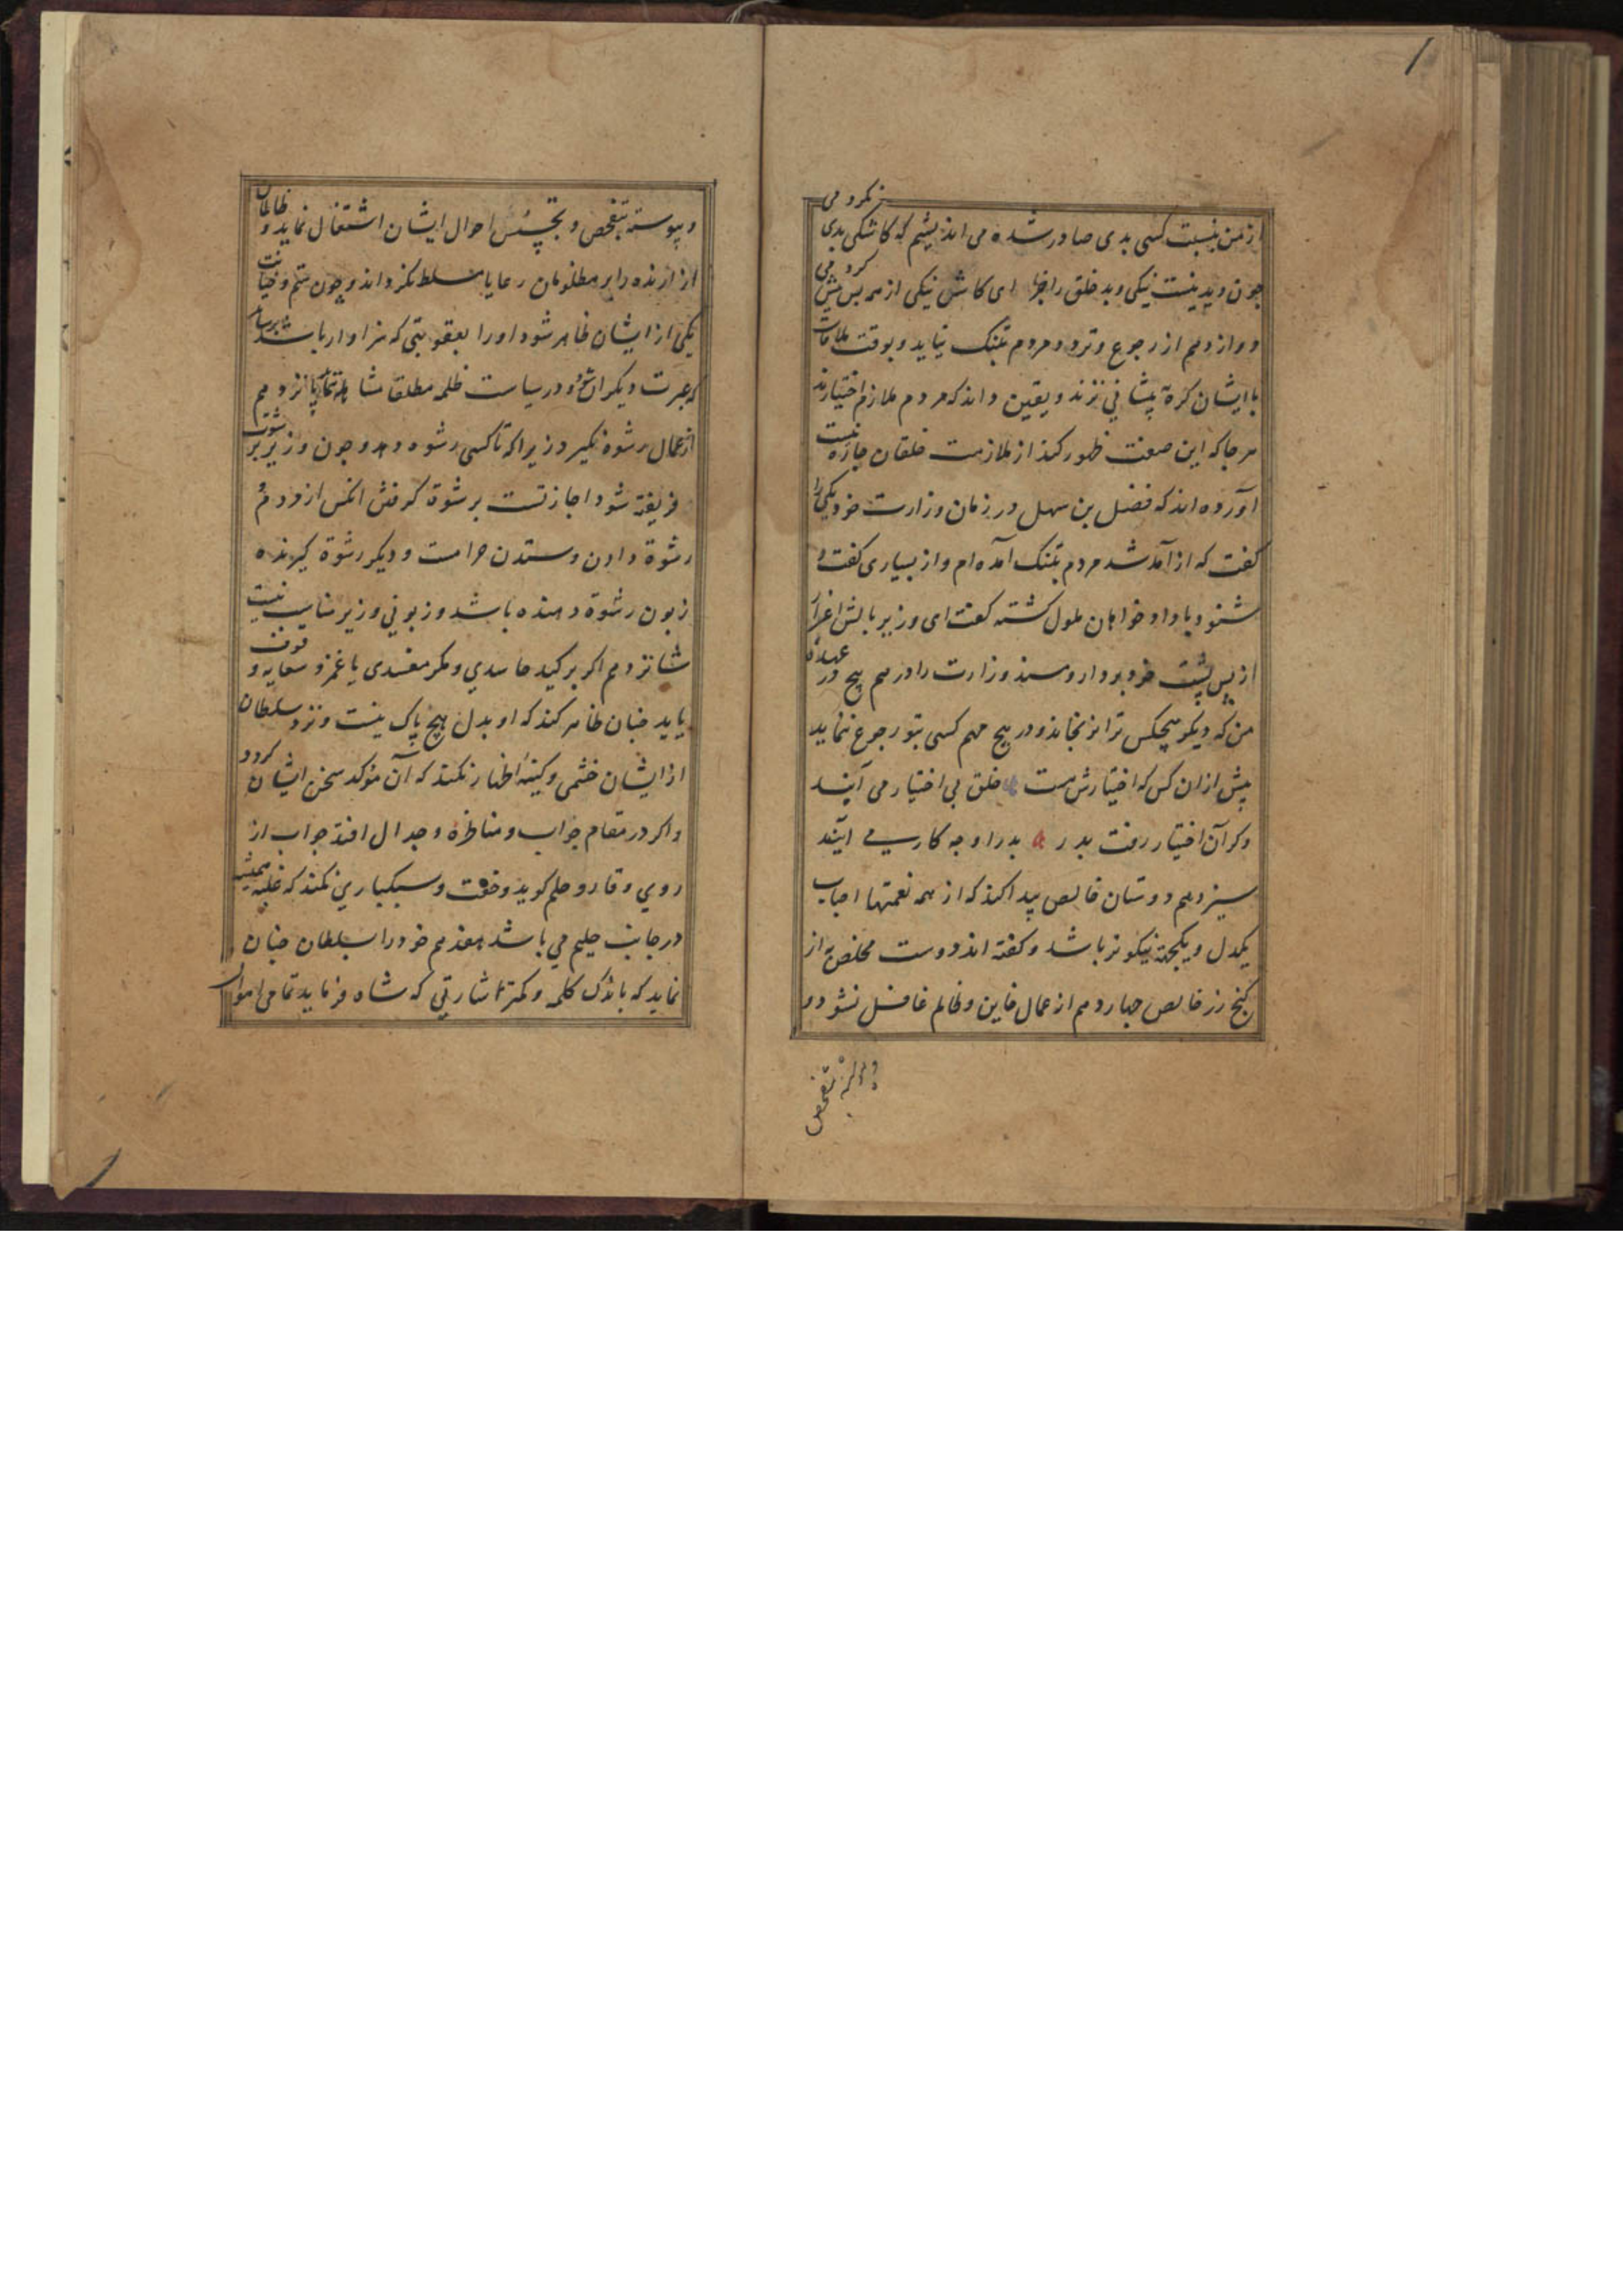 از من بنسبت کسی بدی صادر شده می اندیشم که کاشکی بدی نمی کردمی
چون دیدنیست نیکی و بد خلق را جزا ای کاش نیکی از همه کس بیش کردمی
دوازدهم از رجوع و تردد مردم بتنک نیاید و بوقت ملاقات
با ایشان کره پیشانی نزند و یقین داند که مردم ملازم اختیارند
هر جا که این صفت ظهور کند از ملازمت خلقان چاره نیست
آورده اند که فضل بن سهل در زمان وزارت خود یکی را
کفت که از آمد شد مردم بتنک آمده ام و از بسیاری کفت و
شنود با دادخواهان ملول کشته کفت ای وزیر بالش اعزاز
از پس پشت خود بردار و مسند وزارت را درهم پیچ در عهده
من که دیکر هیچکس ترا نرنجاند و در هیچ مهم کسی بتو رجوع ننماید
پیش از ان کس که اختیارش هست خلق بی اختیار می آیند
وکر آن اختیار رفت بدر بدر او چه کار می آیند
سیزدهم دوستان خالص پیدا کند که از همه نعمتها احباب
یکدل و یکجهة نیکوتر باشد و کفته اند دوست مخلص به از
کنج زر خالص چهاردهم از عمال خاین و ظالم غافل نشود و
پیوسته بتفحص
و پیوسته بتفحص و تجسس احوال ایشان اشتغال نماید و ظالمان
آزارنده را بر مظلومان رعایا مسلط نکرداند و چون ستم و خیانت
یکی از ایشان ظاهر شود او را بعقوبتی که سزاوار باشد برساند
که عبرت دیکران شود و در سیاست ظلمه مطلقا مساهله ننماید پانزدهم
از عمال رشوه نکیرد زیرا که تا کسی رشوه دهد و چون وزیر برشوت
فریفته شود اجازتست بر شوة کرفتن انکس از مردم
رشوة دادن و ستدن حرامست و دیکر رشوة کیرنده
زبون رشوة دهنده باشد و زبونی وزیر مناسب نیست
شانزدهم اکر بر کید حاسدی و مکر مفسدی یا غمز و سعایه وقوف
یابد چنان ظاهر کند که او بدل هیچ باک نیست و نزد سلطان
از ایشان خشمی و کینه اظهار نکند که آن مؤکد سخن ایشان کردد
و اکر در مقام جواب و مناظره و جدال افتد جواب از
روی وقار و حلم کوید و خفت و سبکباری نکند که غلبه همیشه
در جانب حلیم می باشد هفدهم خود را بسلطان چنان
نماید که باندک کلمه و کمتر اشارتی که شاه فرماید تمامی اموال